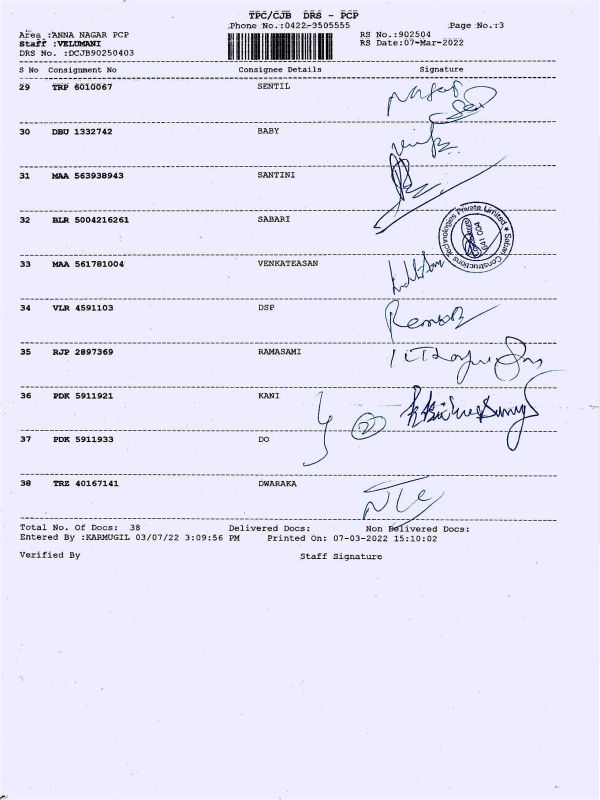 TPC/CJB DRS - PCP
Phone No.:0422-3505555
Page No.:3
Area :ANNA NAGAR PCP
RS No.:902504
Staff :VELUMANI
RS Date:07-Mar-2022
DRS No. :DCJB90250403
S No Consignment No Consignee Details Signature
29 TRP 6010067 SENTIL
30 DBU 1332742 BABY
31 MAA 563938943 SANTINI
32 BLR 5004216261 SABARI
Constructions Technologies Private Limited
641 004
33 MAA 561781004 VENKATEASAN
34 VLR 4591103 DSP
35 RJP 2897369 RAMASAMI
36 PDK 5911921 KANI
2
37 PDK 5911933 DO
38 TRZ 40167141 DWARAKA
Total No. Of Docs: 38 Delivered Docs: Non Delivered Docs:
Entered By :KARMUGIL 03/07/22 3:09:56 PM Printed On: 07-03-2022 15:10:02
Verified By Staff Signature